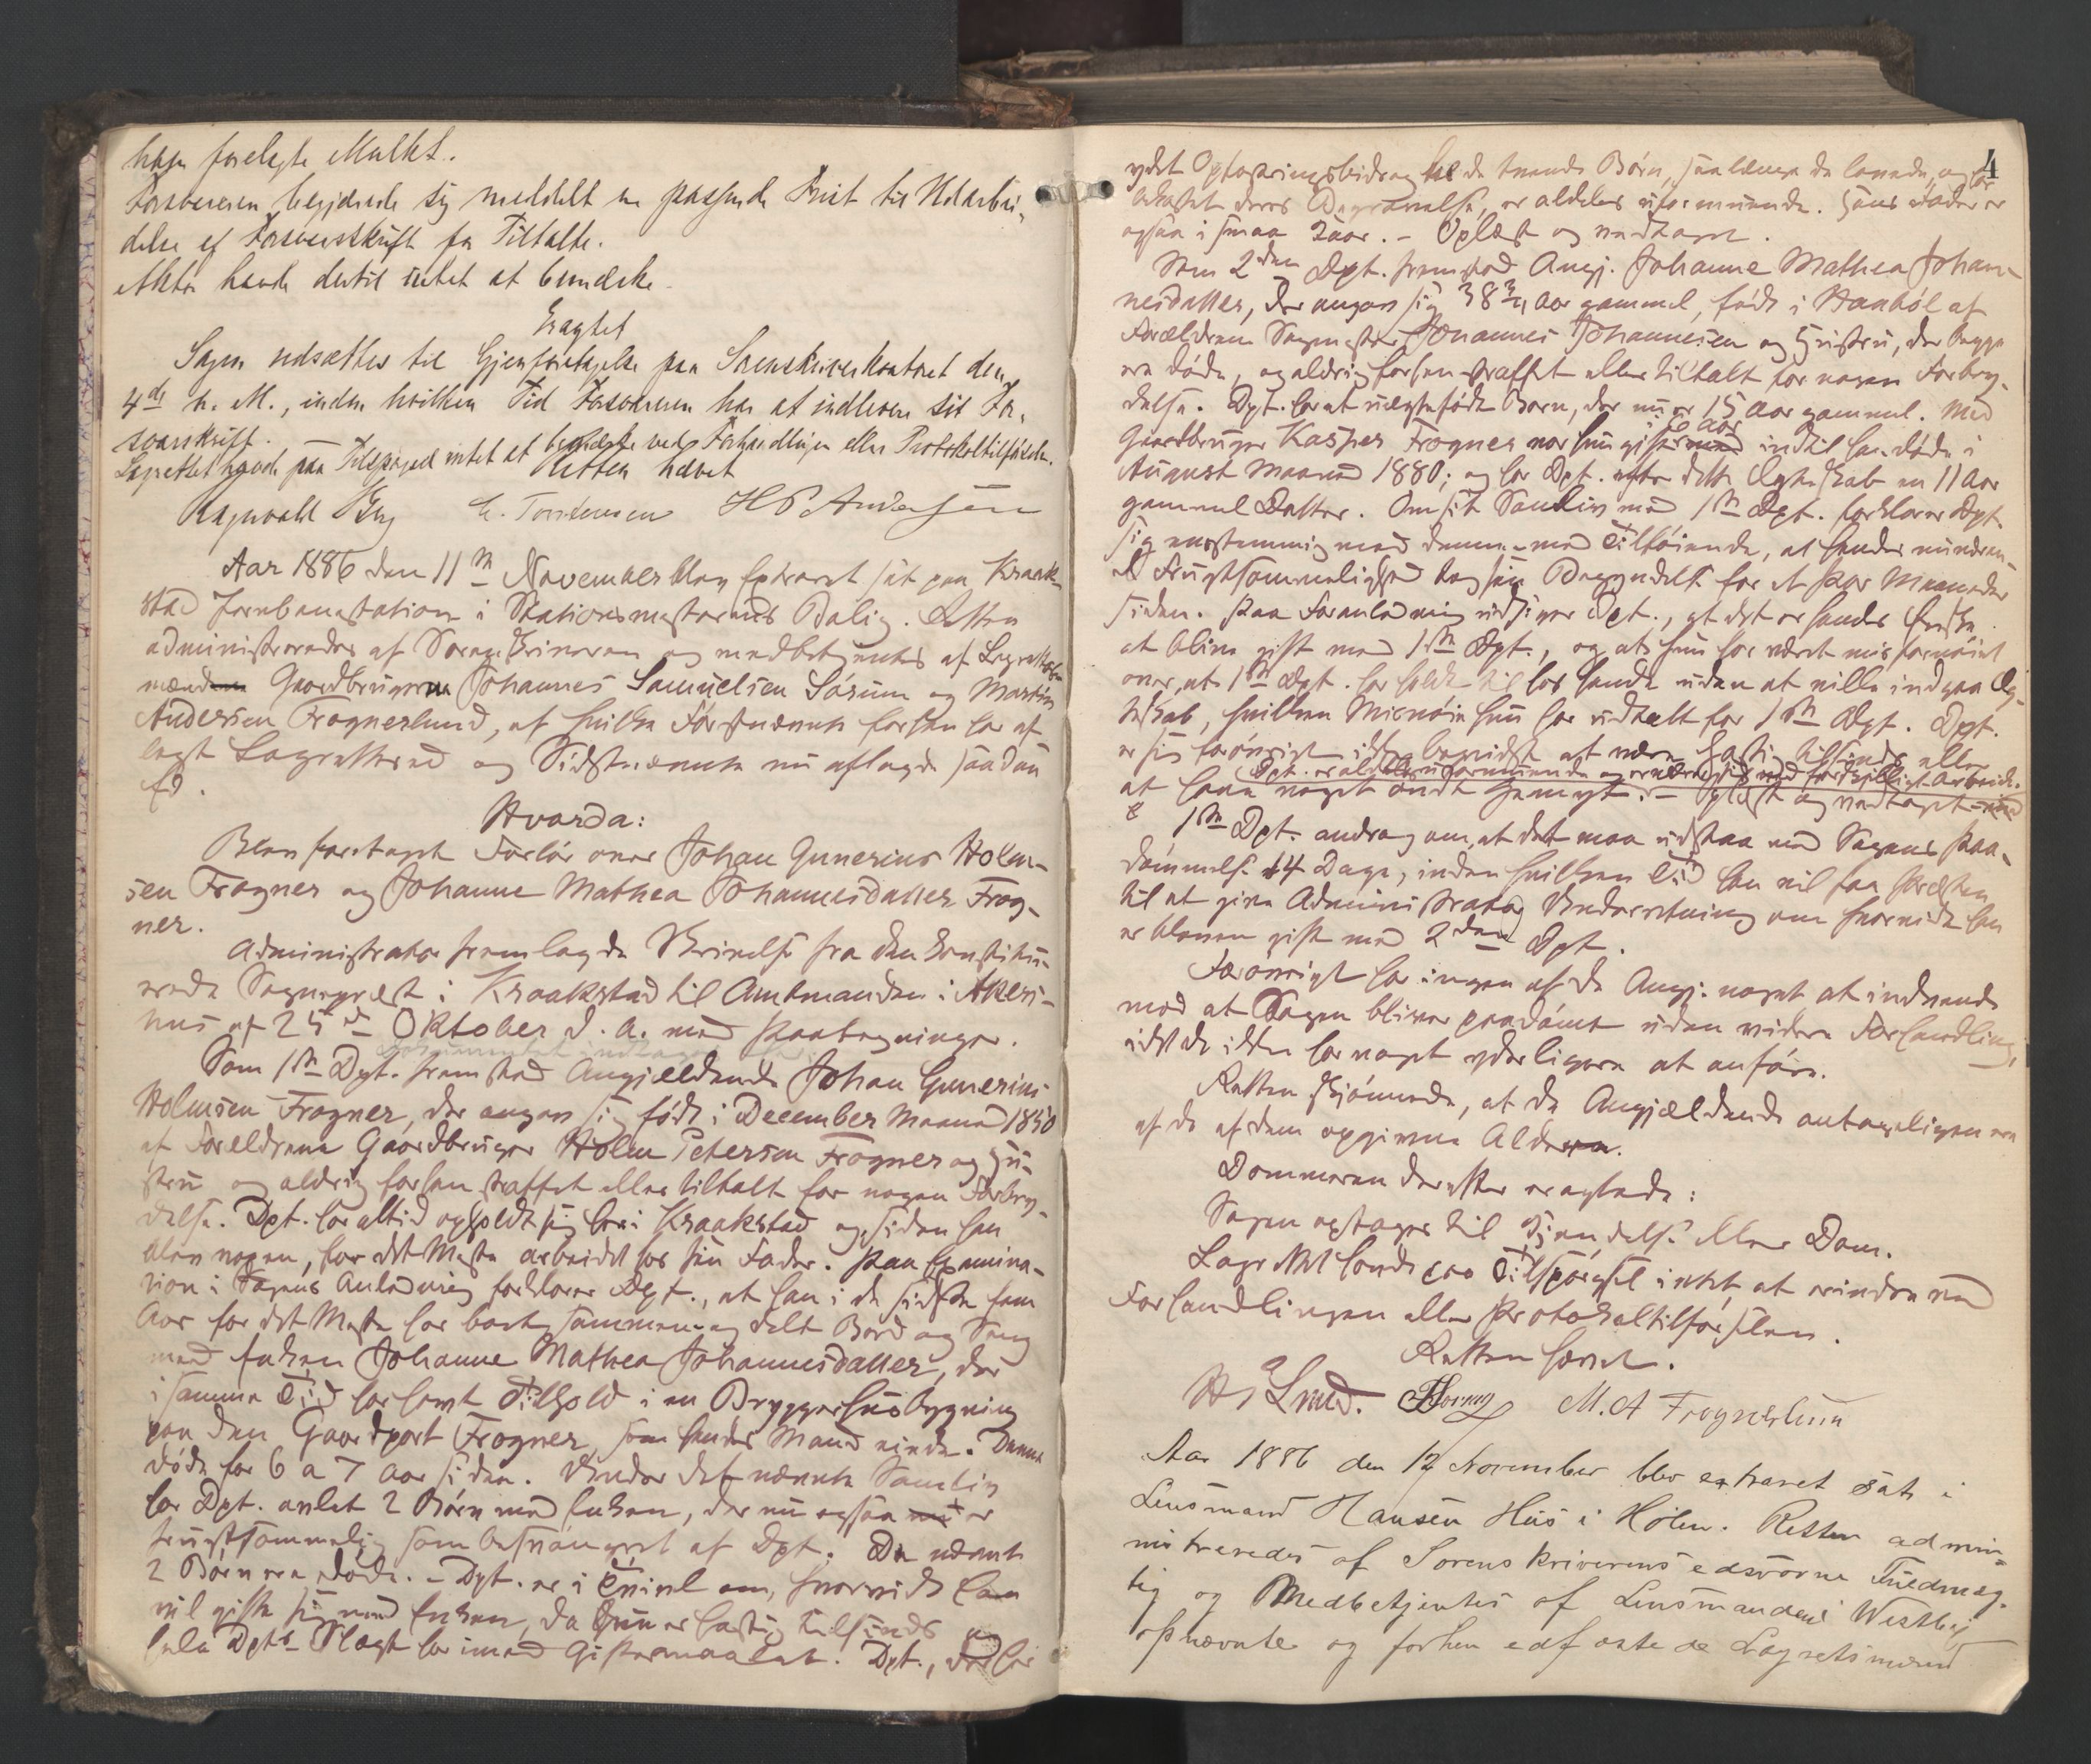 forelagte Mulkt.
Forsvareren begjærede sig meddelt en passende Frist til Udarbei-
delse af Forsvarsskrift for Tiltalte.
Aktor havde dertil intet at bemærke.
Eragtet
Sagen udsættes til Gjenforetagelse paa Sorenskriverkontoret den
4de n. M., inden hvilken Tid Forsvareren har at indlevere sit For-
svarsskrift.
Lagrettet havde paa Tilspørgsel intet at bemærke ved Forhandlingen eller Protokoltilførselen.
Retten hævet
Ragnvald Berg H P Andersen
Aar 1886 den 11te November blev Extraret sat paa Kraak-
stad Jernbanestation i Stationsmesterens Bolig. Retten
administreredes af Sorenskriveren og medbetjentes af Lagrettes-
mænd Gaardbrugerne Johannes Samuelsen Sørum og Martin
Andersen Frognerlund, af hvilke Førstnævnte forhen har af-
lagt Lagrettesed og Sidstnævnte nu aflagde saadan
Ed.
Hvorda:
Blev foretaget Forhør over Johan Gunerius Holm-
sen Frogner og Johanne Mathea Johannesdatter Frog-
ner.
Administrator fremlagde Skrivelse fra den konstitu-
erede Sognepræst i Kraakstad til Amtmanden i Akers-
hus af 25de Oktober d. A. med Paategninger.
Som 1ste Dpt. fremstod Angjældende Johan Gunerius
Holmsen Frogner, der angav sig født i December Maaned 1850
af Forældrene Gaardbruger Holm Petersen Frogner og Hu-
stru og aldrig forhen straffet eller tiltalt for nogen Forbry-
delse. Dpt. har altid opholdt sig her i Kraakstad og, siden han
blev voxen, for det Meste arbeidet hos sin Fader. Paa Examina-
tion i Sagens Anledning forklarer Dpt., at han i de sidste fem
Aar for det Meste har boet sammen og delt Bord og Seng
med Enken Johanne Mathea Johannesdatter, der
i samme Tid har havt Tilhold i en Bryggerhusbygning
paa den Gaardpart Frogner, som hendes Mand eiede. Denne
døde for 6 a 7 Aar siden. Under det nævnte Samliv
har Dpt. avlet 2 Børn med Enken, der nu ogsaa er
frugtsommelig som besvangret af Dpt. De nævnte
2 Børn ere døde. – Dpt. er i Tvivl om, hvorvidt han
vil gifte sig med Enken, da hun er hastig tilsinds og
hele Dpts Slægt har imod Giftermaalet. Dpt., der har
4
ydet Opfostringsbidrag til de tvende Børn, saalænge de levede, og har
bekostet deres Begravelse, er aldeles uformuende. Hans Fader er
ogsaa i smaa Kaar. – Oplæst og vedtaget.
Som 2den Dpt. fremstod Angj. Johanne Mathea Johan-
nesdatter, der angav sig 38 3/4 Aar gammel, født i Haabøl af
Forældrene Sagmester Johannes Johannesen og Hustru, der begge
ere døde, og aldrig forhen straffet eller tiltalt for nogen Forbry-
delse. Dpt. har et uægtefødt Barn, der nu er 15 Aar gammel. Med
Gaardbruger Kasper Frogner var hun gift i 6 Aar indtil han døde i
August Maaned 1880; og har Dpt. efter dette Ægteskab en 11 Aar
gammel Datter. Om sit Samliv med 1ste Dpt. forklarer Dpt.
sig enstemmig med denne med Tilføiende, at hendes nuværen-
de Frugtsommelighed tog sin Begyndelse for et Par Maaneder
siden. Paa Foranledning udsiger Dpt., at det er hendes Ønske
at blive gift med 1ste Dpt., og at hun har været misfornøiet
over, at 1ste Dpt. har holdt til hos hende uden at ville indgaa Æg-
teskab, hvilken Misnøie hun har udtalt for 1ste Dpt. Dpt.
er sig forøvrigt ikke bevidst at være hastig tilsinds eller
Dpt. er aldeles uformuende og ernærer sig ved forskjelligt Arbeide.
at have noget ondt Gemyt. – Oplæst og vedtaget.
1ste Dpt. androg om, at det maa udstaa med Sagens Paa-
dømmelse 14 Dage, inden hvilken Tid han vil faa Præsten
til at give Administrator Underretning om hvorvidt han
er bleven gift med 2den Dpt.
Forøvrigt har ingen af de Angj. noget at indvende
mod at Sagen bliver paadømt uden videre Forhandling,
idet de ikke har noget yderligere at anføre.
Retten skjønnede, at de Angjældende antageligen ere
af de af dem opgivne Aldere.
Dommeren derefter eragtede:
Sagen optages til Kjendelse eller Dom.
Lagrettet havde paa Tilspørgsel intet at erindre ved
Forhandlingen eller Protokoltilførselen.
Retten hævet.
M. A Frognerlund
Aar 1886 den 12 November blev extraret sat i
Lensmand Hansen Hus i Hølen. Retten admin-
istreredes af Sorenskriverens edsvorne Fuldmæg-
tig og Medbetjentes af Lensmanden i Westby
opnævnte og forhen edfæstede Lagretsmænd